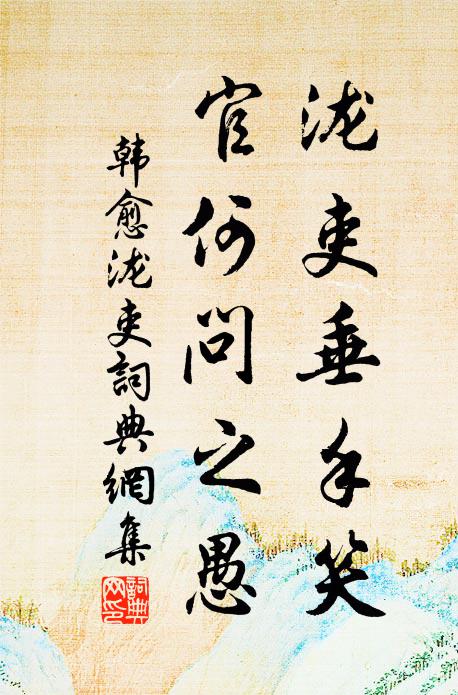 泷吏垂手笑
官何问之愚
韩愈泷吏詞典網集
詞典网印